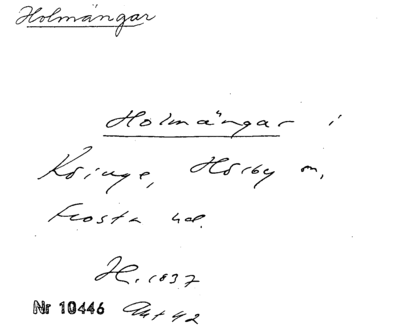 Holmängar
Holmängar i
Kringe, Hörby sn,
Frosta hd.
H. 1837
Nr 10446 Akt 42